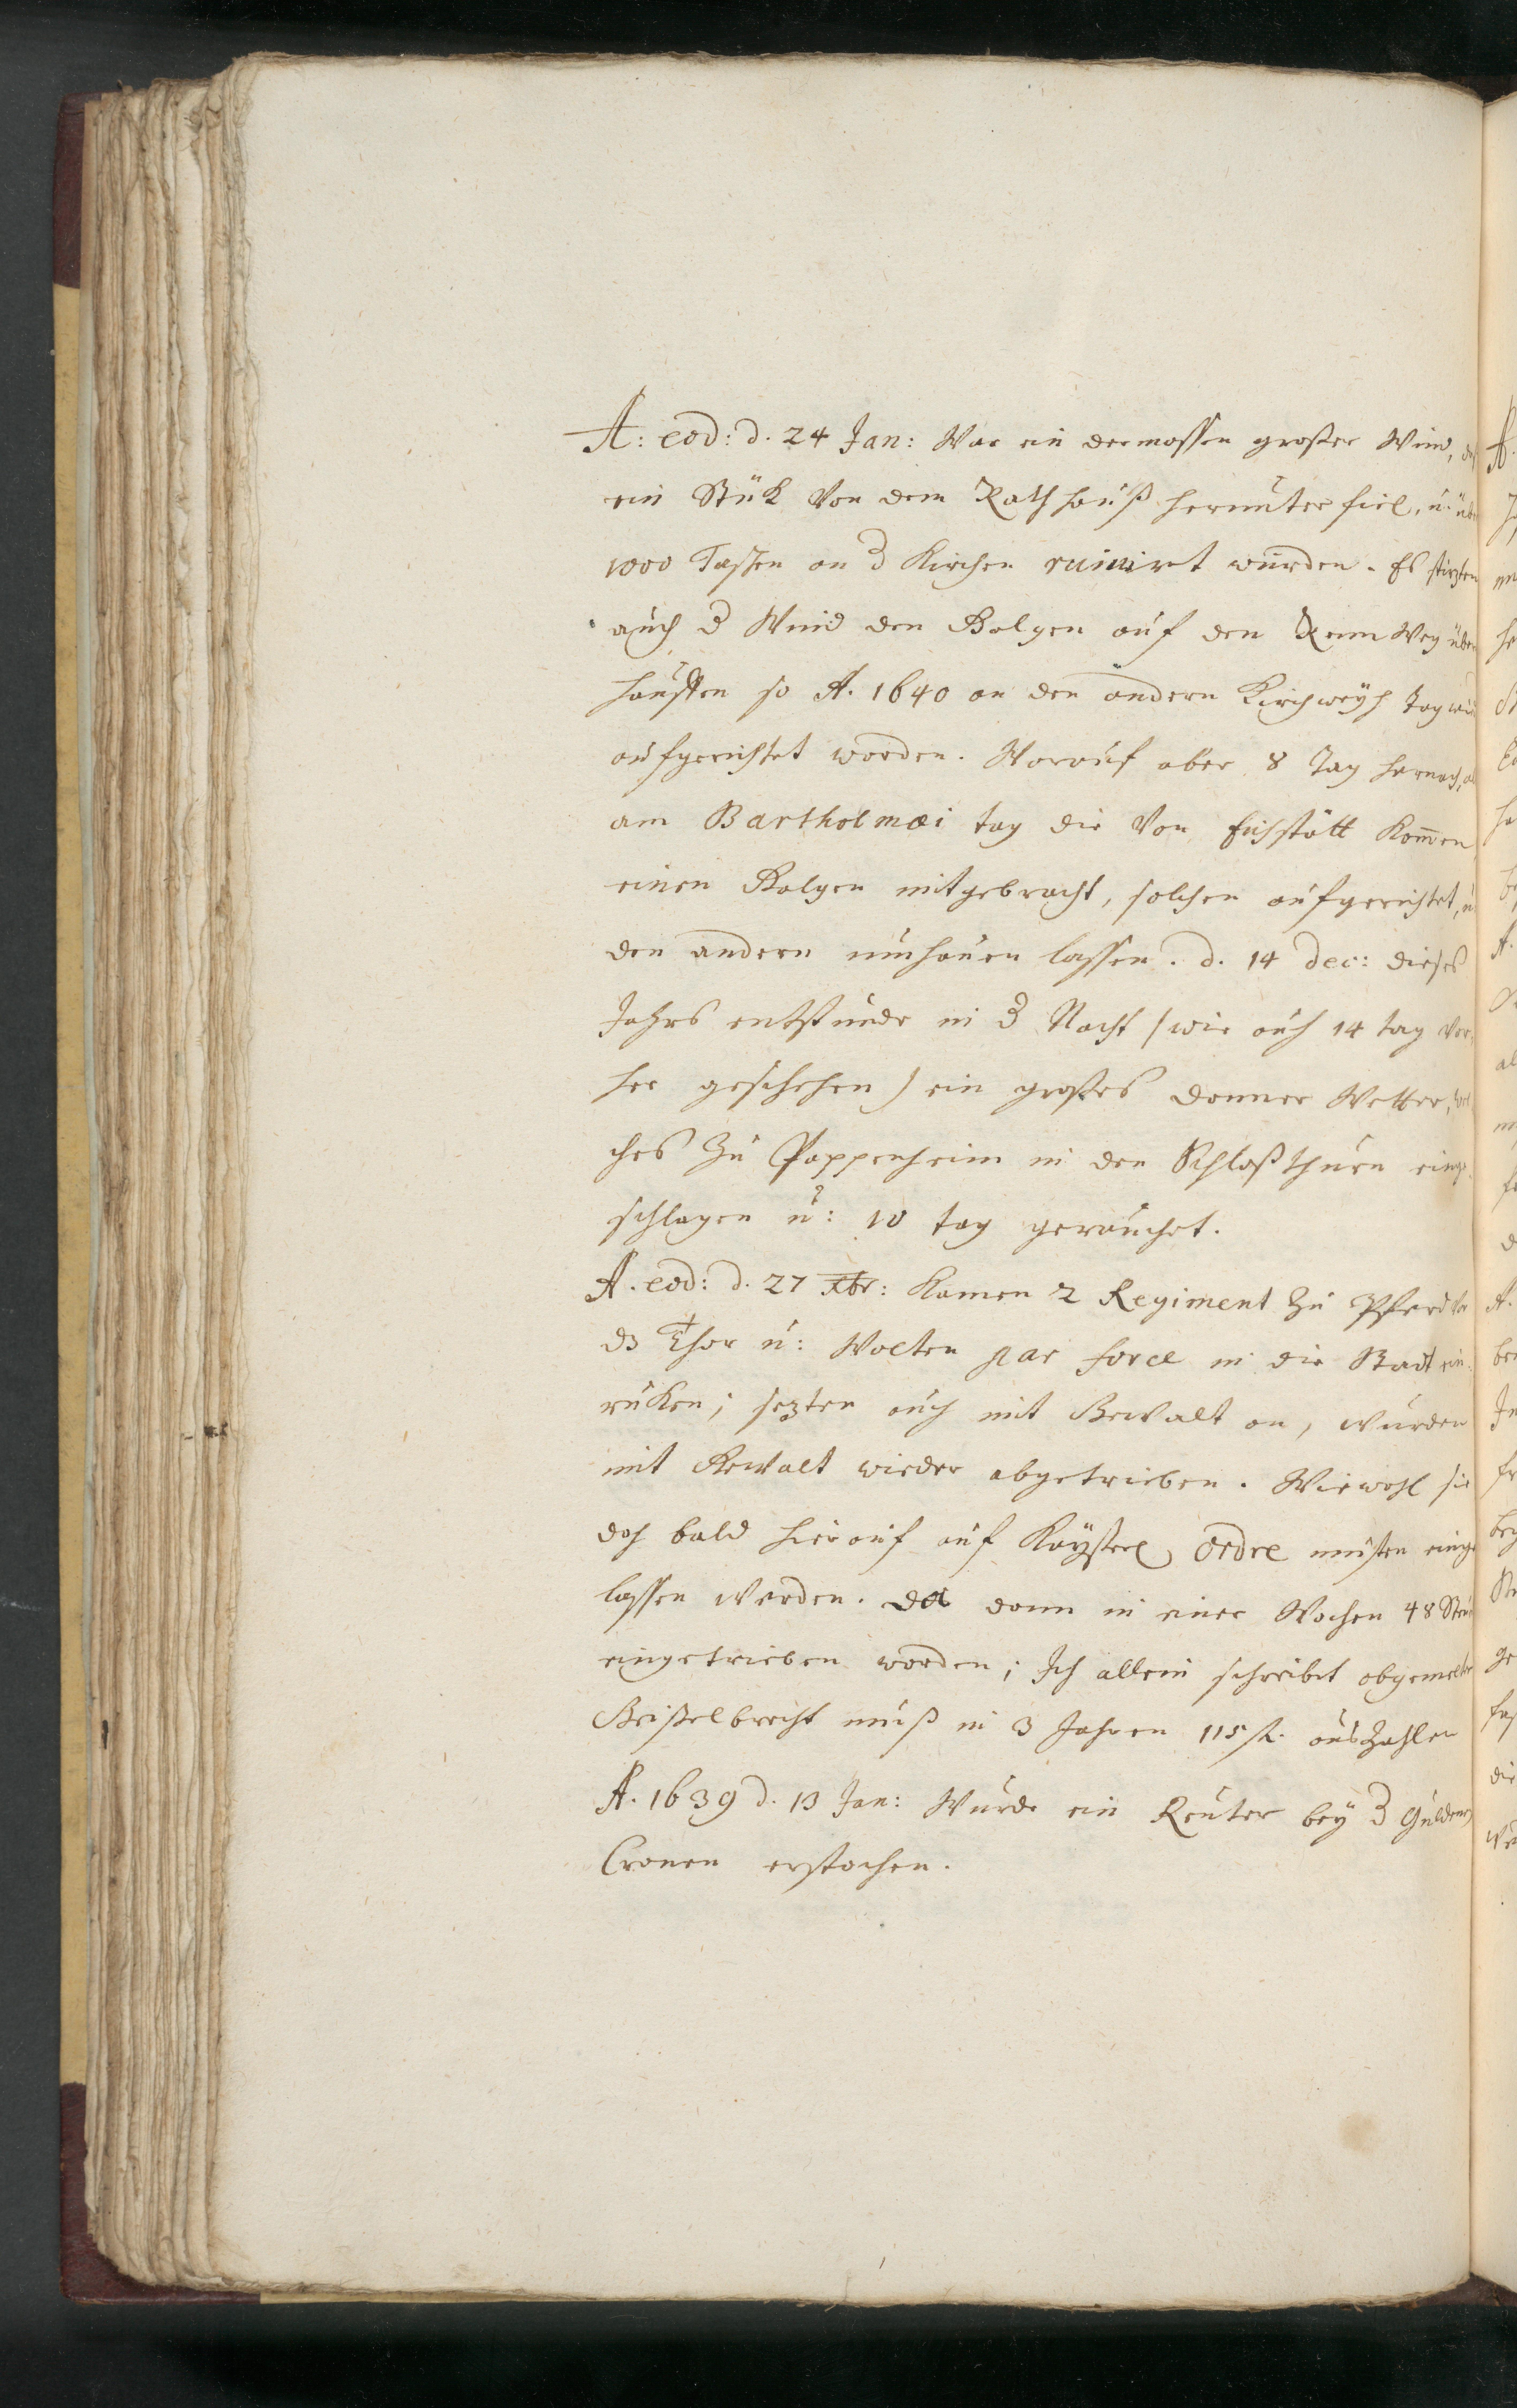 A: eod: d. 24 Jan: War ein dermassen großer Wind, dz
ein Stük von dem Rathhauß herunter fiel, u. über
1000 Taschen an d Kirchen ruinirt wurden. Es stirzten
auch d Wind den Galgen auf den RennWeg über
hauffen so A. 1640 an den andern Kirchweyh Tag
aufgerichtet worden. Worauf aber 8 Tag hernach,
am Bartholmæi tag die von Eichstätt kom̄en,
einen Galgen mitgebracht, solchen aufgerichtet, u
den andern umhauen lassen. d. 14 dec: dieses
Jahrs entstunde in d Nacht (wie auch 14 tag vor,
her geschehen) ein großes donner Wetter, wel
ches zu Pappenheim in den Schloßthurn einge
schlagen u: 10 tag gerauchet.
A. eod: d. 27 Xbr: kamen 2 Regiment zu Pferd vor
dz Thor u: Wolten par force in die Stadt ein,
ruken; sezten auch mit Gewalt an, wurden
mit Gewalt wieder abgetrieben. Wiewohl sie
doch bald hierauf auf Kayserl. Ordre musten einge
lassen werden. da dann in einer Wochen 48
eingetrieben worden; Ich allein schreibt obgemelter
Geißelbrecht muß in 3 Jahren 115 fl. auszahlen
A. 1639 d. 13 Jan: Wurde ein Reuter bey d Gulden
Cronen erstochen.